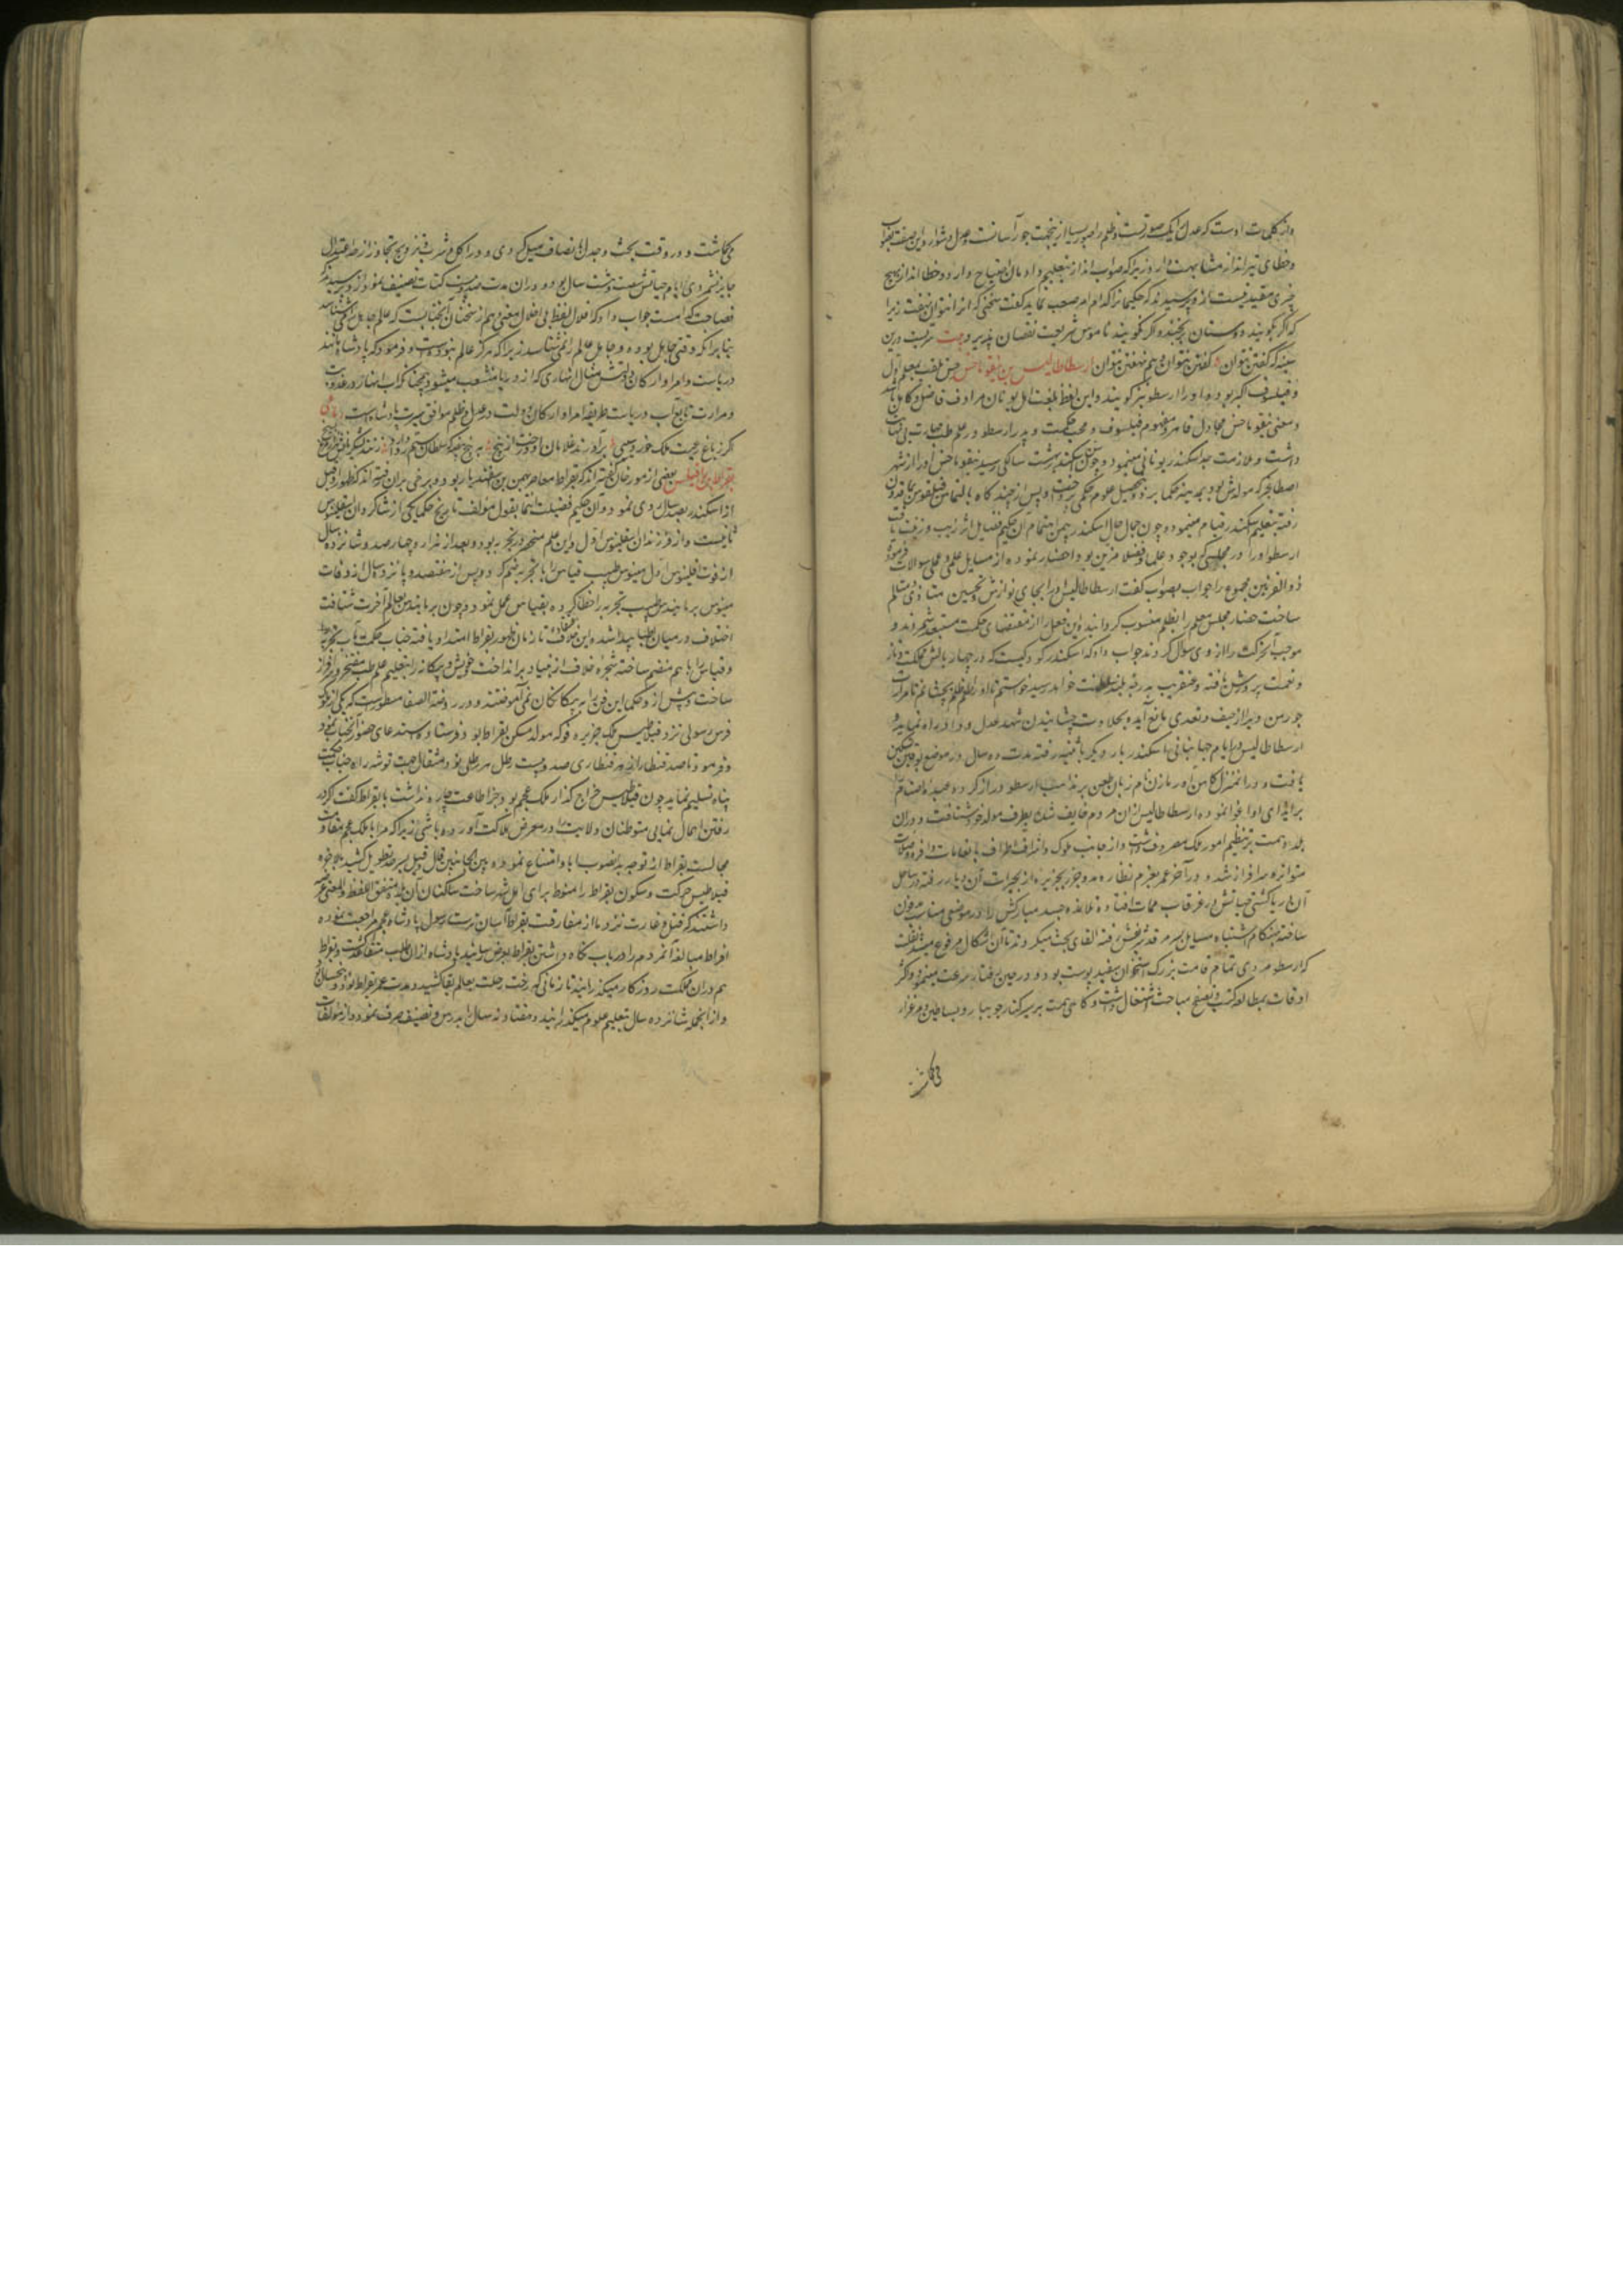 واز کلمات اوست که عدل را یک صورتست و ظلم را صور بسیار ازینجهت جور آسانست و عدل دشوار و این صفت بصواب
وخطای تیرانداز مشابهت دارد زیرا که صواب انداز بتعلیم و ادمان احتیاج دارد و خطا انداز بهیچ
چیزی مقید نیست از و پرسیدند که حکیمانرا کدام امر صعب نماید کفت سخنی که آنرا نتوان نهفت زیرا
که اکر بکویند دوستان برنجند و اکر نکویند ناموس شریعت نقصان پذیرد بیت سریست درین
سینه که کفتن نتوان کفتن نتوان و هم نهفتن نتوان ارسطاطالیس بن نیقوماخس لقب بمعلم اول
و فیلسوف اکبر بوده و او را ارسطو نیز کویند و این لفظ بلغت اهل یونان مرادف فاضل و کامل باشد
و معنی نیقوماخس مجادل قاهر و مفهوم فیلسوف و محب حکمت و پدر ارسطو در علم طب مهارت بی نهایت
داشت و ملازمت جد اسکندر یونانی مینمود و چون بسن هشت سالکی رسید نیقوماخس او را از شهر
اصطاجر که مولدش بود بمدینه حکما برد و بتحصیل علوم حکمی پرداخت و پس از چند کاه بالتماس فیلقوس بماقدون
رفته بتعلیم اسکندر قیام مینمود و چون جمال حال اسکندر بیمن اهتمام آن حکیم فضایل اثر زیب و زینت یافت
ارسطو او را در مجلسی که بوجود علما و فضلا مزین بود احضار نموده از مسایل علمی و عملی سوالات فرمود
ذو القرنین مجموع را جواب بصواب کفت ارسطاطالیس او را بجای نوازش و تحسین متاذی و متالم
ساخت حضار مجلس معلم را بظلم منسوب کردانیده این فعل را از مقتضای حکمت مستبعد شمردند و
موجب آن حرکت را از وی سوال کردند جواب داد که اسکندر کودکیست که در چهار بالش مملکت و ناز
و نعمت پرورش یافته و عنقریب به رتبه بلند سلطنت خواهد رسید خواستم تا او را طعم ظلم بچشانم تا مرارت
جور من ویرا از حیف و تعدی مانع آید و بحلاوت چشانیدن شهد عدل و داد راه نماید و
ارسطاطالیس در ایام جهانبانی اسکندر بار دیکر باثینیه رفته مدت ده سال در موضع لوقین تمکین
یافت و در انمنزل کاهن اورمازن نام زبان طعن بر مذهب ارسطو دراز کرده عبده اصنام را
برایذای او اغوا نموده ارسطاطالیس از ان مردم خایف شده بطرف مولد خود شتافت و در ان
بلده همت بر تنظیم امور ملک مصروف داشت و از جانب ملوک و اشراف اطراف بانعامات وافره و صلات
متواتره سرافراز شد و در آخر عمر بعزم نظاره مد و جزر بجزیره از بحیرات آن دیار رفته در ساحل
آن دریا کشتی حیاتش در غرقاب ممات افتاد و تلامذه جسد مبارکش را در موضعی مناسب مدفون
ساخته بهنکام اشتباه مسایل بسر مرقدش رفته القای بحث میکردند تا آن اشکال مرفوع میشد نقلست
که ارسطو مردی تمام قامت بزرک استخوان سفید پوست بود و در حین رفتار سرعت مینمود و اکثر
اوقات بمطالعه کتب و تنقیح مباحث اشتغال داشت و کاهی همت بر سیر کنار جویبار و بساطین و مرغزار
میکاشت و در وقت بحث و جدل بانصاف میل کردی و در اکل و شرب و تزویج تجاوز از حد اعتدال
جایز نشمردی ایام حیاتش شصت و هشت سال بود و در ان مدت صد و بیست کتاب تصنیف نمود از و پرسیدند که
فصاحت کدامست جواب داد که اقلال لفظ بی اخلال معنی و هم از سخنان آنجنابست که عالم جاهل را میشناسد
بنابر انکه وقتی جاهل بوده و جاهل عالم را نمی شناسد زیرا که هرکز عالم نبوده است و فرمود که پادشاه مانند
دریاست و امرا و ارکان دولتش مثال انهاری که از دریا منشعب میشود همچنانکه آب انهار در عذوبت
و مرارت تابع آب دریاست طریقه امرا و ارکان دولت در عدل و ظلم موافق سیرت پادشاه است
اکر زباغ رعیت ملک خورد سیبی برآورند غلامان او درخت از بیخ به پنج بیضه که سلطان ستم روا دارد زنند لشکریانش هزار مرغ بسیخ
بقراط بن ایرقلیدس بعضی از مورخان کفته اند که بقراط معاصر بهمن بن اسفندیار بود و برخی بران رفته اند که ظهور او قبل
از اسکندر بصد سال روی نمود و آن حکیم فضیلت انتما بقول مؤلف تاریخ حکما یکی از شاکردان اسقلینوس
ثانیست و از فرزندان اسقلینوس اول و این علم منحصر در تجربه بود و بعد از هزار و چهار صد و شانزده سال
از فوت اسقلینوس اول مینوس طبیب قیاس را با تجربه ضم کرد و پس از هفتصد و پانزده سال از وفات
مینوس برمانیدس طبیب تجربه را خطا کرده بقیاس عمل نمود و چون برمانیدس بعالم آخرت شتافت
اختلاف در میان اطبا پیدا شده این خلاف تا زمان ظهور بقراط امتداد یافته جناب حکمت مآب تجربه
و قیاس را باهم منضم ساخته شجره خلاف از بنیاد برانداخت خویش و بیکانه را بتعلیم علم طب مفتخر و سرافراز
ساخت و پیش از و حکما این فن را به بیکانکان نمی آموختند و در روضة الصفا مسطورست که یکی از ملوک
فرس رسولی نزد فیلاطیس ملک جزیره قوکه مولد و مسکن بقراط بود فرستاده استدعای حضور آنجناب نمود
و فرمود تا صد قنطار از زر هر قنطاری صد و بیست رطل هر رطلی نود مثقال جهت توشه راه جناب حکمت
پناه تسلیم نماید چون فیلاطیس خراج کذار ملک عجم بود و بجز اطاعت چاره نداشت با بقراط کفت که در
رفتن اهمال نمایی متوطنان ولایت را در معرض هلاکت آورده باشی زیرا که مرا با ملک عجم مقاومت
محالست بقراط از توجه بدانصوب ابا و امتناع نموده و بین الجانبین قال و قیل بسرحد تطویل کشید بالاخره
فیلاطیس حرکت و سکون بقراط را منوط برای اهل شهر ساخت ساکنان آن بلده متفق اللفظ و المعنی عرضه
داشتند که قتل و غارت نزد ما از مفارقت بقراط آسان ترست رسول پادشاه عجم مراجعت نموده
افراط مبالغه آنمردم را در باب نکاه داشتن بقراط بعرض رسانید پادشاه از ان طلب متقاعد کشت و بقراط
هم در ان مملکت روزکار میکذرانید تا زمانی که رخت رحلت بعالم بقا کشید و مدت عمر بقراط نود و پنج سال بود
و از انجمله شانزده سال بتعلیم علوم میکذرانید و هفتاد و نه سال را بدرس و تصنیف صرف نمود و از مؤلفات